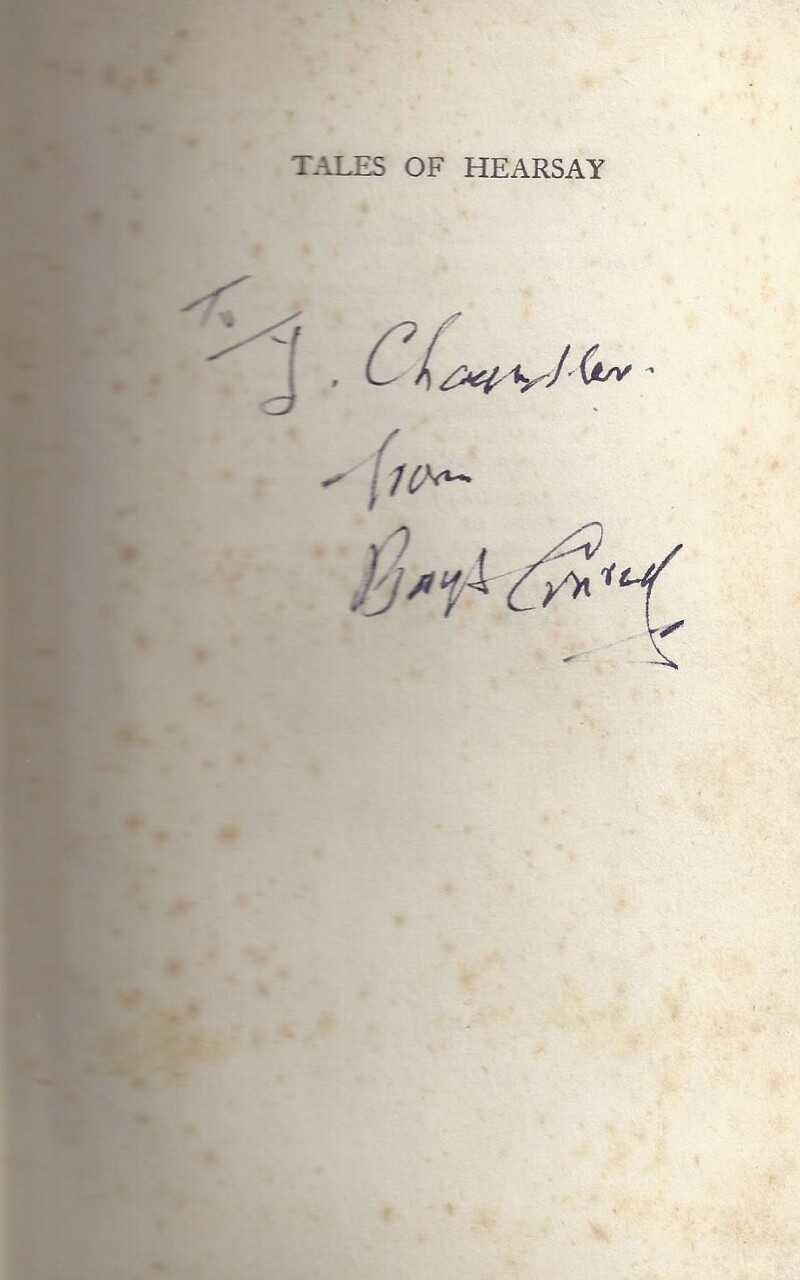 TALES OF HEARSAY
To
J. Chandler.
from
Borys Conrad